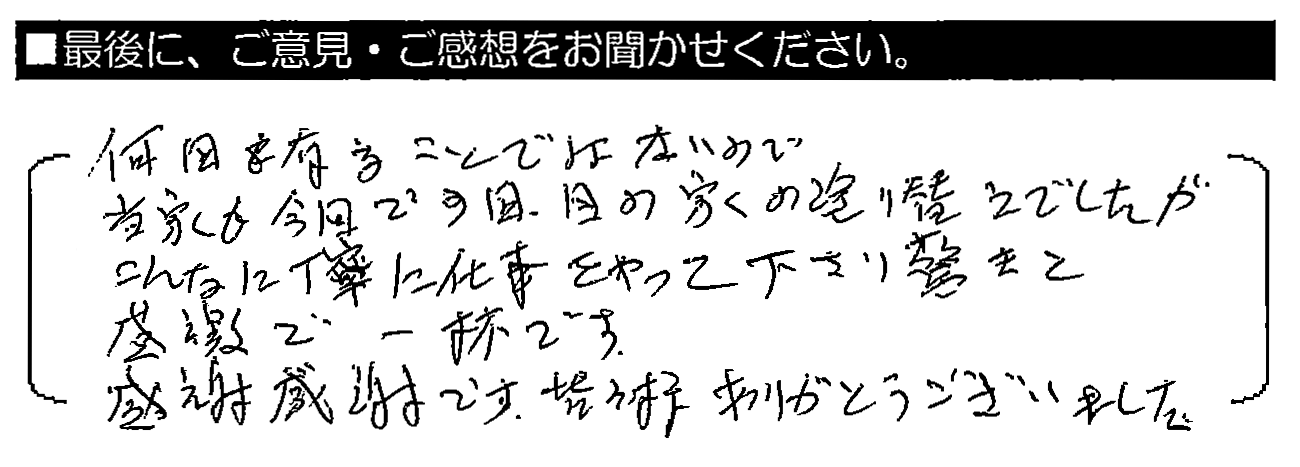 ■最後に、ご意見・ご感想をお聞かせください。
何回も有ることではないので
当家も今回で3回目の家の塗り替えでしたが
こんなに丁寧に仕事をやって下さり驚きと
感激で一杯です。
感謝感謝です。皆々様ありがとうございました